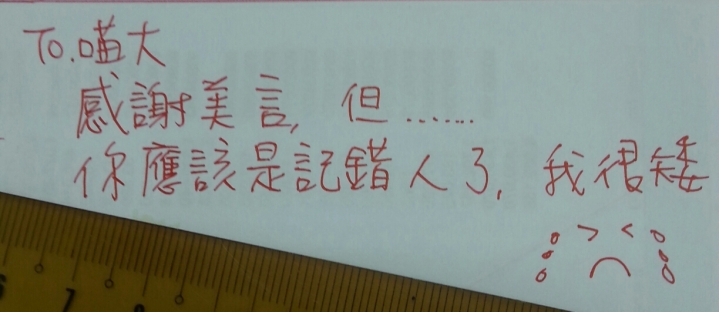 To.喵大
感謝美言,但.......
你應該是記錯人了,我很矮
6 7 8